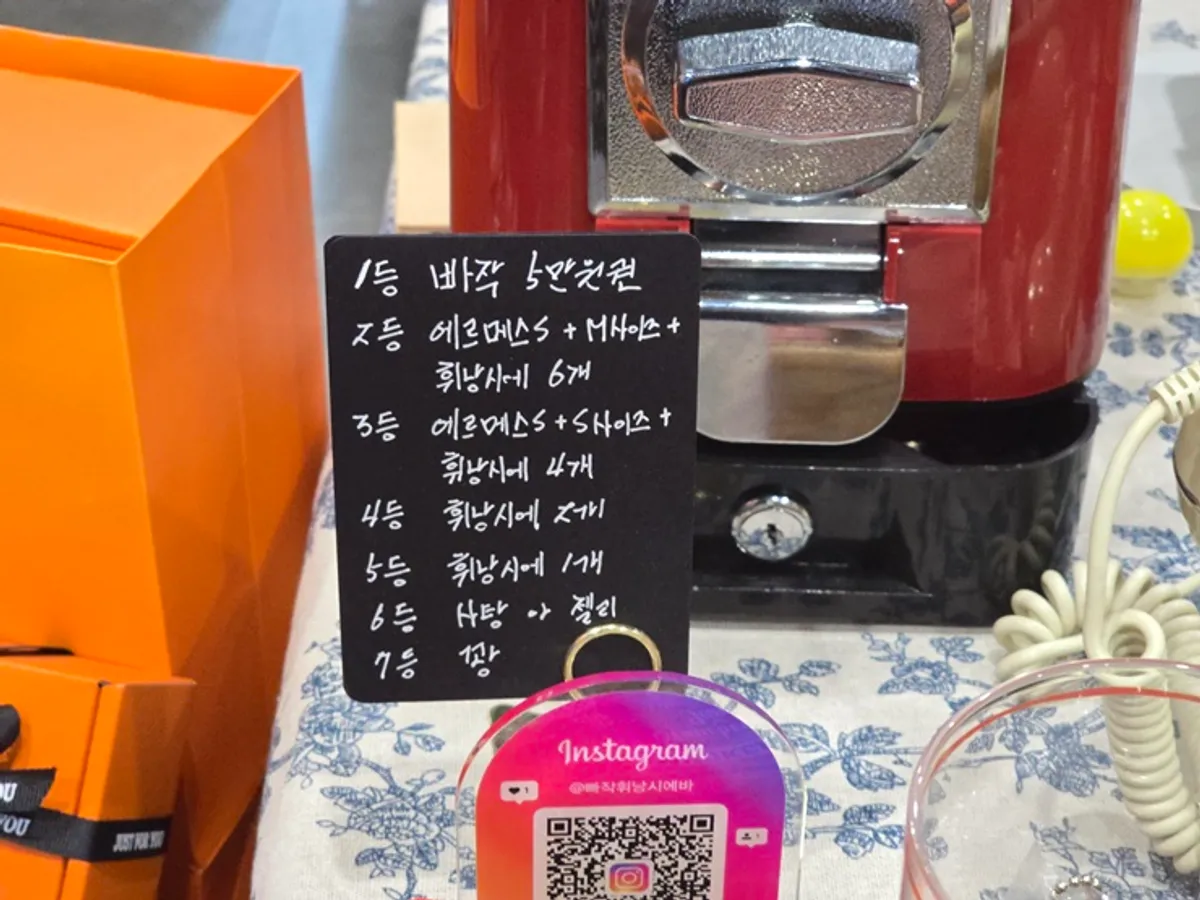 1등 빠작 5만원권
2등 에르메스S + M사이즈 +
휘낭시에 6개
3등 에르메스S + S사이즈 +
휘낭시에 4개
4등 휘낭시에 2개
5등 휘낭시에 1개
6등 사탕 or 젤리
7등 꽝
Instagram
@빠작휘낭시에바
OU
YOU
JUST FOR YOU